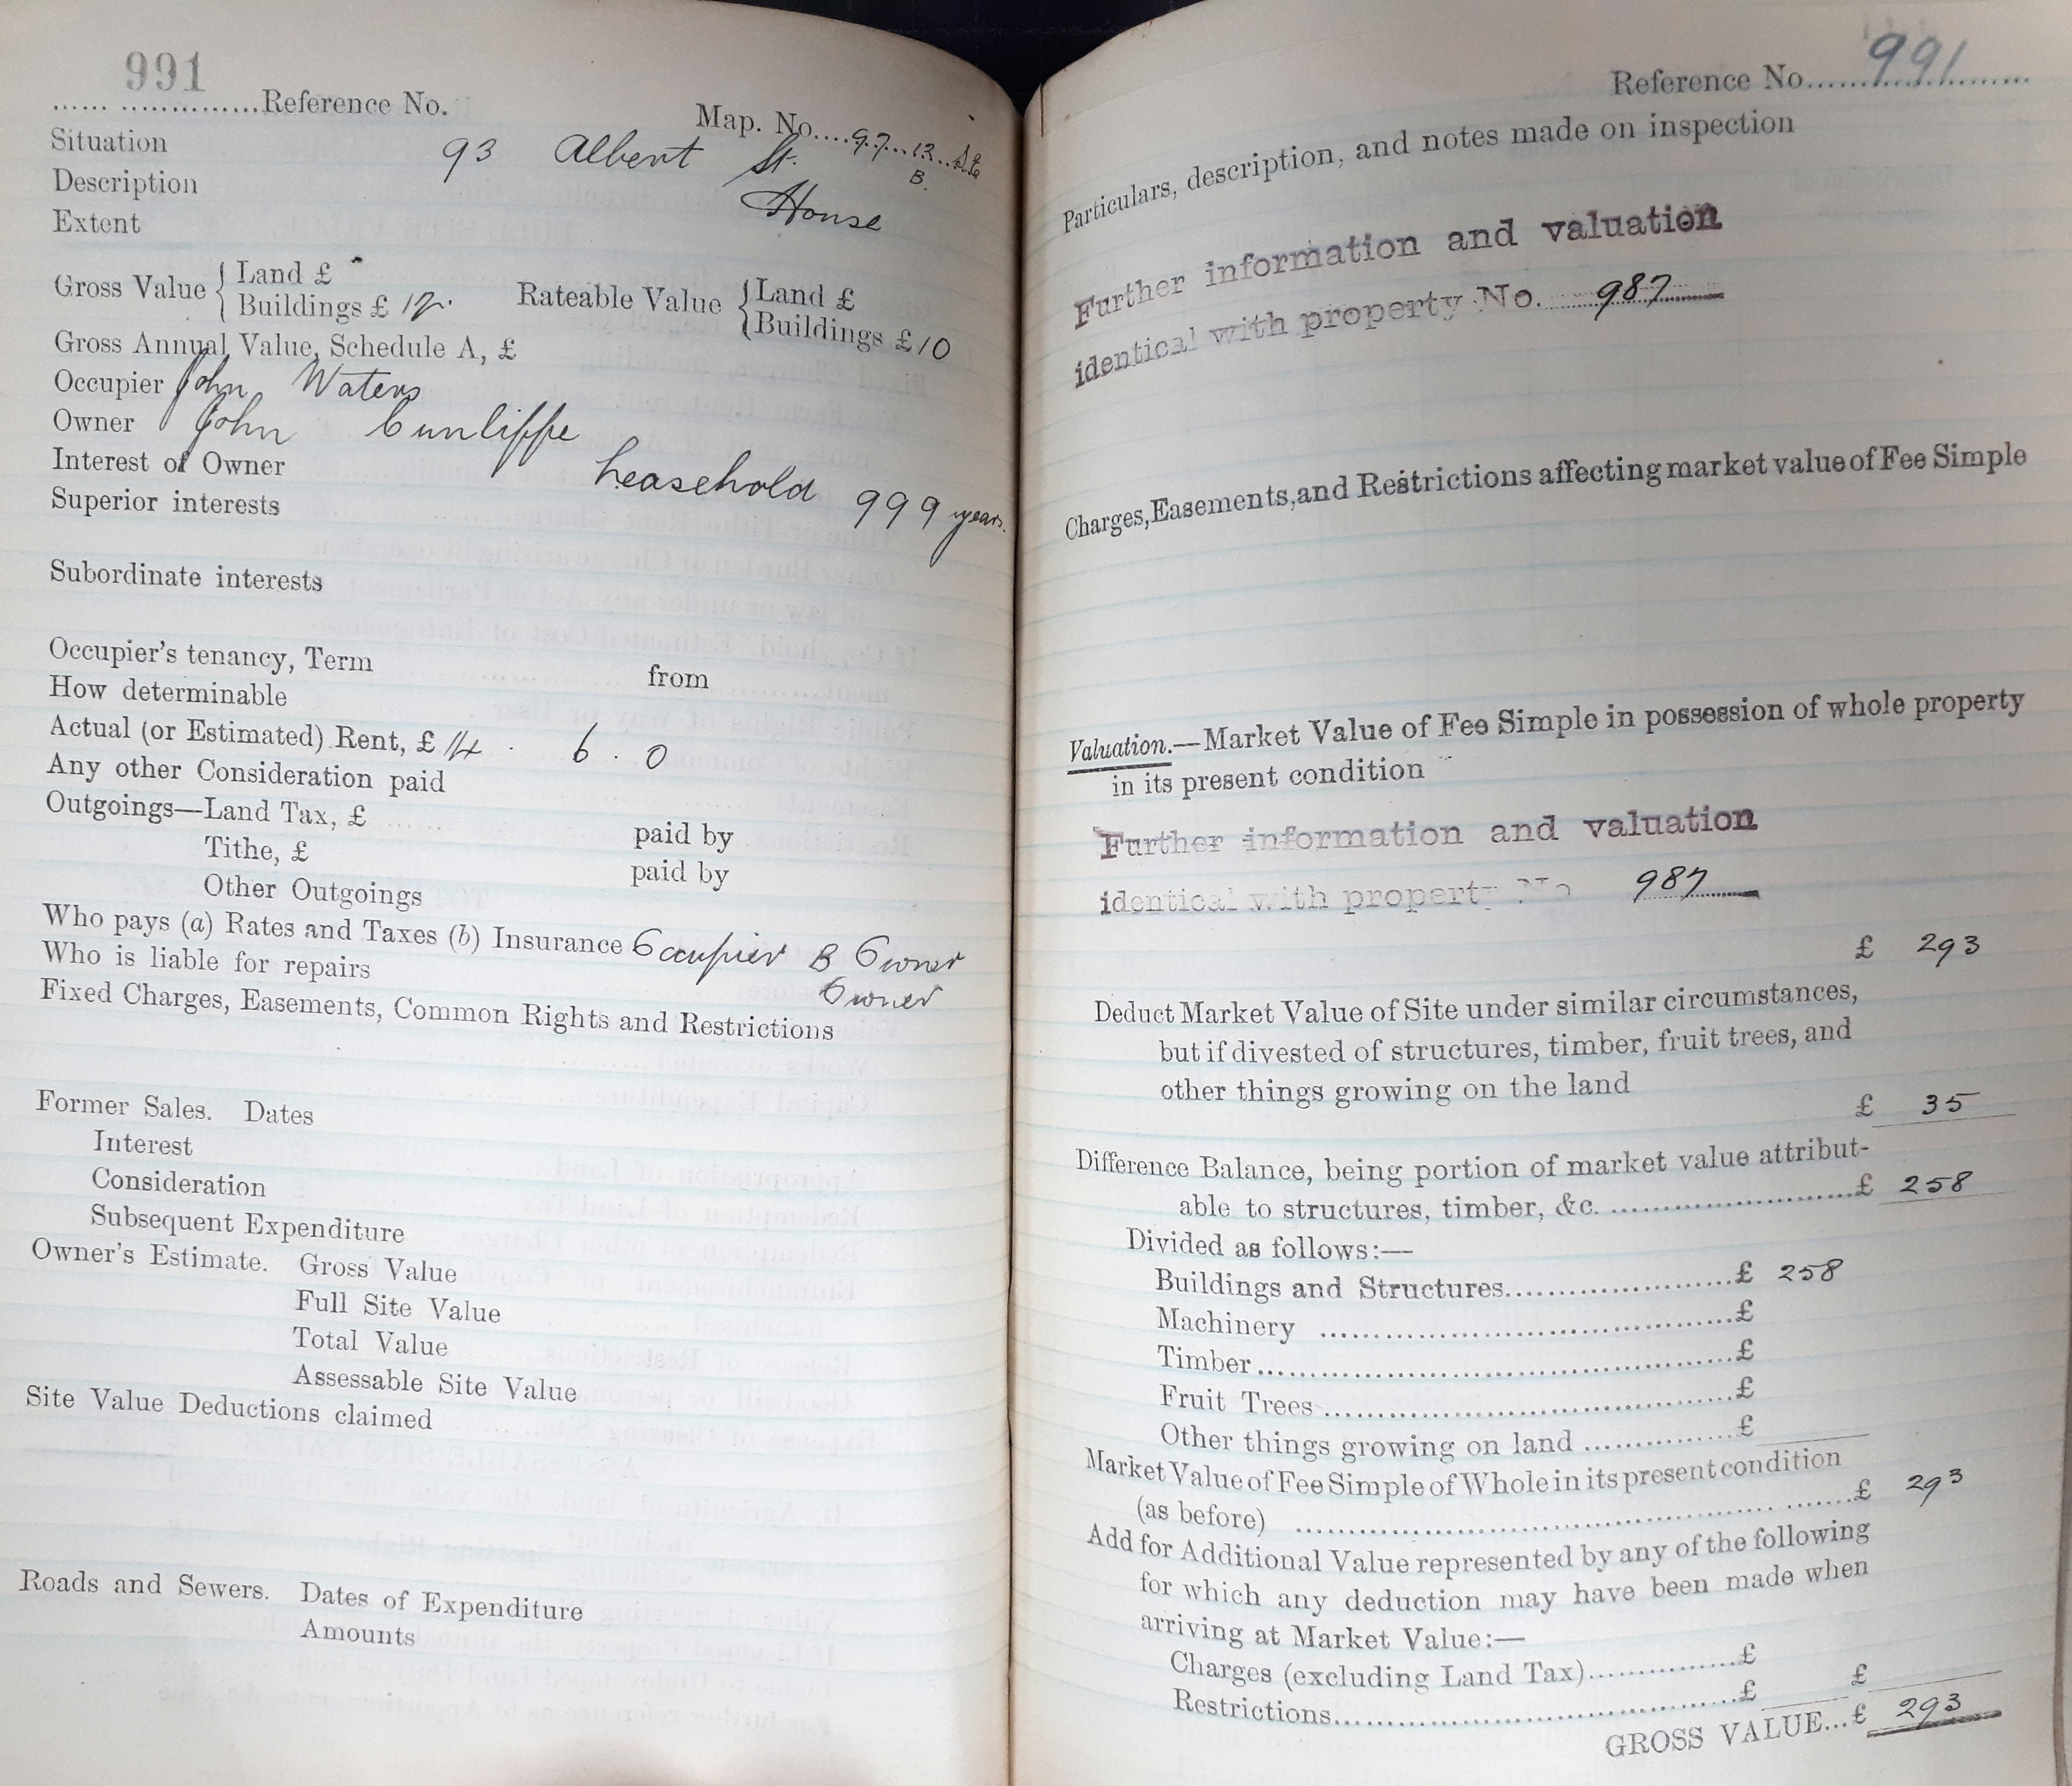 991
...... ...............Reference No.
Map. No....97...13...
B.
Situation 93 Albert St.
Description House
Extent
Gross Value { Land £
Buildings £ 12. Rateable Value { Land £
Buildings £ 10
Gross Annual Value, Schedule A, £
Occupier John Waters
Owner John Cunliffe
Interest of Owner Leasehold 999 years.
Superior interests
Subordinate interests
Occupier's tenancy, Term from
How determinable
Actual (or Estimated) Rent, £ 14 . 6 . 0
Any other Consideration paid
Outgoings—Land Tax, £ paid by
Tithe, £ paid by
Other Outgoings
Who pays (a) Rates and Taxes (b) Insurance Occupier B Owner
Who is liable for repairs Owner
Fixed Charges, Easements, Common Rights and Restrictions
Former Sales. Dates
Interest
Consideration
Subsequent Expenditure
Owner's Estimate. Gross Value
Full Site Value
Total Value
Assessable Site Value
Site Value Deductions claimed
Roads and Sewers. Dates of Expenditure
Amounts
Reference No......991...........
Particulars, description, and notes made on inspection
Further information and valuation
identical with property No. 987
Charges, Easements, and Restrictions affecting market value of Fee Simple
Valuation.—Market Value of Fee Simple in possession of whole property
in its present condition
Further information and valuation
identical with property No 987
£ 293
Deduct Market Value of Site under similar circumstances,
but if divested of structures, timber, fruit trees, and
other things growing on the land
£ 35
Difference Balance, being portion of market value attribut-
able to structures, timber, &c. ........................£ 258
Divided as follows:—
Buildings and Structures........................£ 258
Machinery ..........................................£
Timber................................................£
Fruit Trees..........................................£
Other things growing on land ................£
Market Value of Fee Simple of Whole in its present condition
(as before) ..........................................................£ 293
Add for Additional Value represented by any of the following
for which any deduction may have been made when
arriving at Market Value:—
Charges (excluding Land Tax)................£
Restrictions..........................................£ £
GROSS VALUE...£ 293